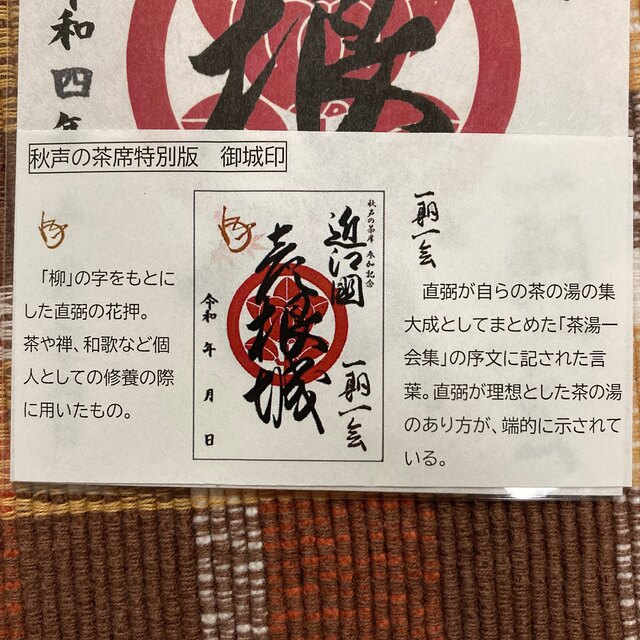 令和四年
根
秋声の茶席特別版　御城印
「柳」の字をもとに
した直弼の花押。
茶や禅、和歌など個
人としての修養の際
に用いたもの。
秋声の茶席 参加記念
近江國
彦根城
一期一会
令和　年　月　日
一期一会
直弼が自らの茶の湯の集
大成としてまとめた「茶湯一
会集」の序文に記された言
葉。直弼が理想とした茶の湯
のあり方が、端的に示されて
いる。